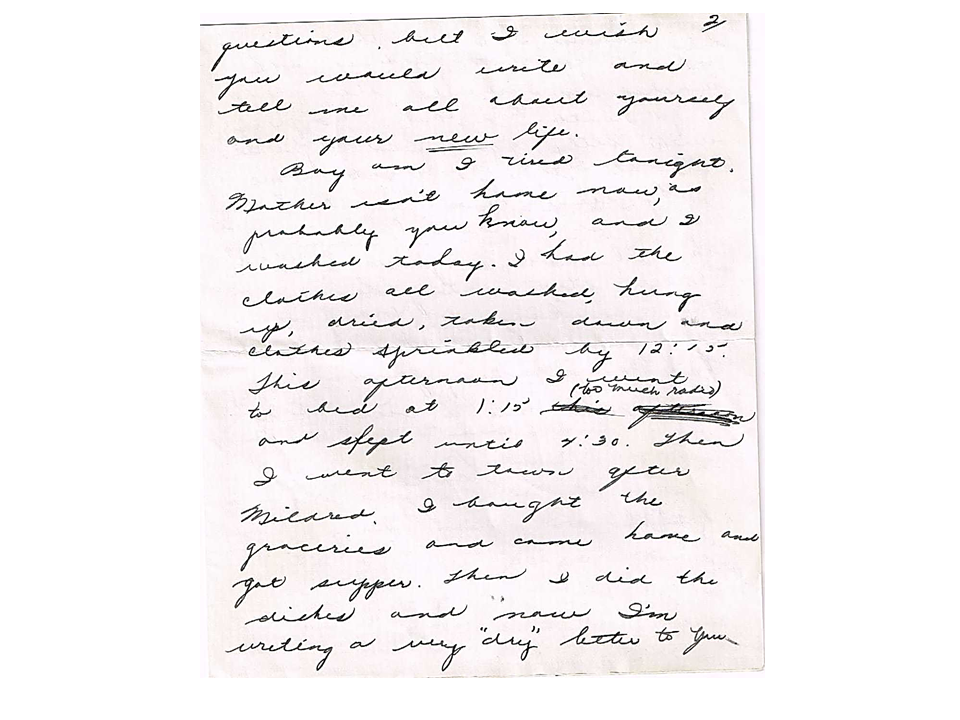 2/
questions, but I wish
you would write and
tell me all about yourself
and your new life.
Boy am I tired tonight.
Mother isn't home now, as
probably you know, and I
washed today. I had the
clothes all washed, hung
up, dried, taken down and
clothes sprinkled by 12:15.
This afternoon I went
(too much radio)
to bed at 1:15 this afternoon
and slept until 4:30. Then
I went to town after
Mildred. I bought the
groceries and came home and
got supper. Then I did the
dishes and now I'm
writing a very "dry" letter to you